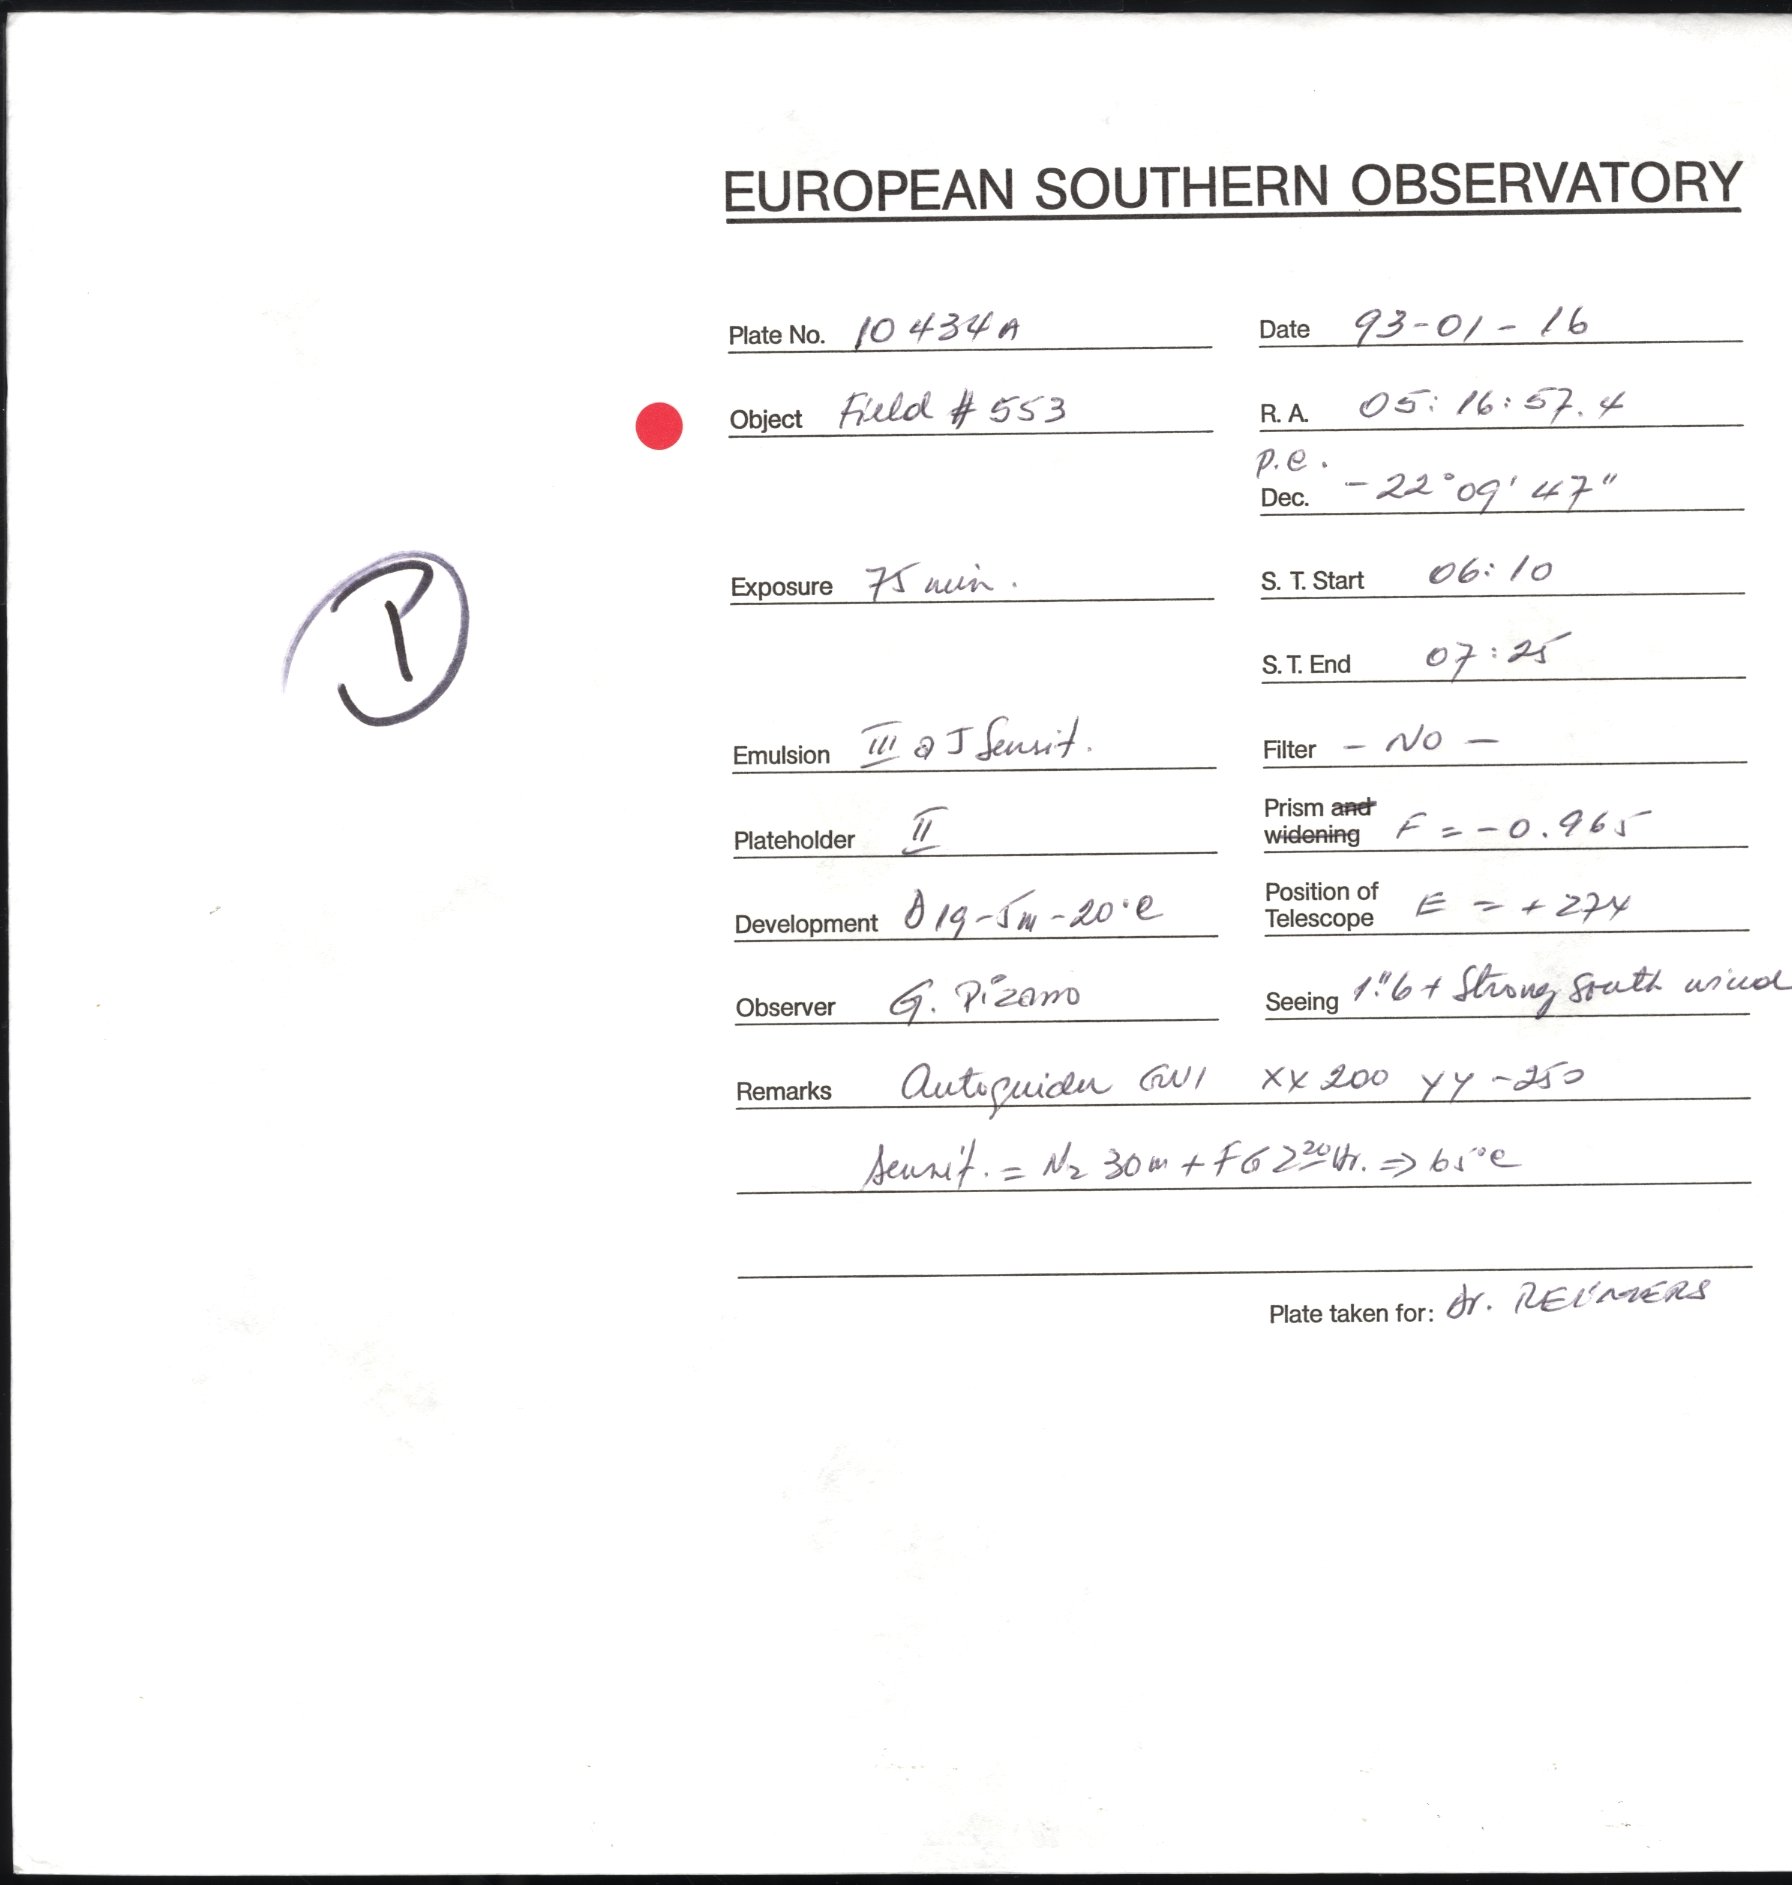 EUROPEAN SOUTHERN OBSERVATORY
Plate No. 10434A Date 93-01-16
Object Field # 553 R. A. 05:16:57.4
p.e.
Dec. -22°09'47"
Exposure 75 min. S. T. Start 06:10
S. T. End 07:25
Emulsion III a J Sensit. Filter - NO -
Plateholder II Prism and widening F = -0.965
Development D19-5m-20°C Position of Telescope E = +274
Observer G. Pizarro Seeing 1."6 + Strong South wind
Remarks Autoguider GW1 XX 200 YY -250
Sensit. = N2 30m + FG 2 20 Hr. => 65°C
Plate taken for: Dr. REIMERS
P